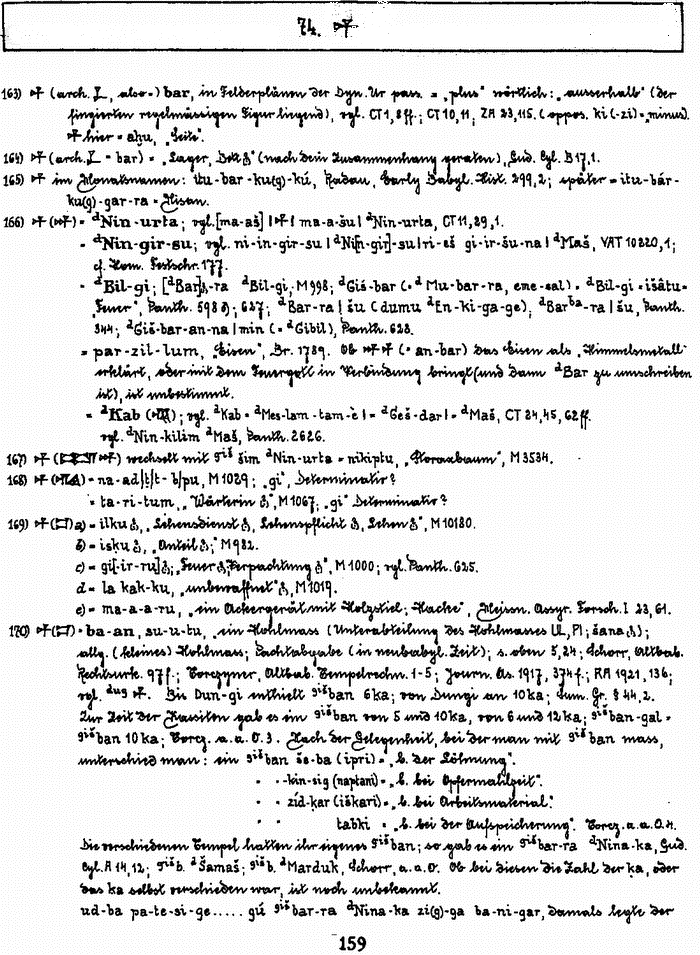 74. 𒈦
163) 𒈦 (arch. , also-) bar, in Felderplänen der Dyn. Ur pass. = „plus“ wörtlich: „ausserhalb“ (der
fingierten regelmässigen Figur liegend), vgl. CT 1, 8 ff.; CT 10, 11; ZA 23, 115. (oppos. ki(-zi) = „minus).
𒈦 hier = aḫu, „Seite“.
164) 𒈦 (arch. = bar) = „Lager, Bett (nach dem Zusammenhang geraten), Gud. Cyl. B 17, 1.
165) 𒈦 im Monatsnamen: itu-bar-ku(g)-kú, Radau, Early Babyl. Hist. 299, 2; später = itu-bár-
ku(g)-gar-ra = Nisan.
166) 𒈦 (𒈦) = ᵈNin-urta; vgl. [ma-aš] | 𒈦 | ma-a-šu | ᵈNin-urta, CT 11, 29, 1.
= ᵈNin-gir-su; vgl. ni-in-gir-su | ᵈNi[n-gir]-su | ri-eš gi-ir-šu-na | ᵈMaš, VAT 10220, 1;
cf. Hom. Festschr. 177.
= ᵈBil-gi; [ᵈBar], -ra ᵈBil-gi, M 998; ᵈGiš-bar (= ᵈMu-bar-ra, eme-sal) = ᵈBil-gi = išâtu =
„Feuer“, Panth. 598; 627; ᵈBar-ra | šu (dumu ᵈEn-ki-ga-ge), ᵈBarᵇᵃ-ra | šu, Panth.
344; ᵈGiš-bar-an-na | min (= ᵈGibil), Panth. 628.
= par-zil-lum, „Eisen“, Br. 1789. Ob (= an-bar) das Eisen als „Himmelsmetall“
erklärt, oder mit dem Feuergott in Verbindung bringt (und dann ᵈBar zu umschreiben
ist), ist unbestimmt.
= ᵈKab; vgl. ᵈKab = ᵈMes-lam-tam-è | = ᵈGeš-dar | = ᵈMaš, CT 24, 45, 62 ff.
vgl. ᵈNin-kilim ᵈMaš, Panth. 2626.
167) 𒈦 wechselt mit ᵍⁱˢ šim ᵈNin-urta = nikiptu, „Storaxbaum“, M 3534.
168) 𒈦 = na-ad/ṭ/t-b/pu, M 1029; „gi“, Determinativ?
= ta-ri-tum, „Wärterin“, M 1067; „gi“ Determinativ?
169) 𒈦 a) = ilku, „Lehensdienst, Lehenspflicht, Lehen“, M 10180.
b) = isku, „Anteil“, M 982.
c) = gi[-ir-ru]; „Feuer, Verpachtung“, M 1000; vgl. Panth. 625.
d = la kak-ku, „unbewaffnet“, M 1019.
e) = ma-a-a-ru, „ein Ackergerät mit Holzstiel; Hacke“, Meissn. Assyr. Forsch. I 23, 61.
170) 𒈦 = ba-an, su-u-tu, „ein Hohlmass (Unterabteilung des Hohlmasses UL, PI; šana);
allg. (kleines) Hohlmass; Pachtabgabe (in neubabyl. Zeit); s. oben 5, 24; Schorr, Altbab.
Rechtsurk. 97 f.; Torczyner, Altbab. Tempelrechn. 1-5; Journ. As. 1917, 374 f.; RA 1921, 136;
vgl. ᵈᵘᵍ 𒈦. Bis Dun-gi enthielt ᵍⁱˢban 6 ka; von Dungi an 10 ka; Sum. Gr. § 44, 2.
Zur Zeit der Kassiten gab es ein ᵍⁱˢban von 5 und 10 ka, von 6 und 12 ka; ᵍⁱˢban-gal =
ᵍⁱˢban 10 ka; Torcz. a. a. O. 3. Nach der Gelegenheit, bei der man mit ᵍⁱˢban mass,
unterschied man: ein ᵍⁱˢban še-ba (ipri) = „b. der Löhnung“.
" " -kin-sig (naptani) = „b. bei Opfermahlzeit“.
" " zíd-ḳar (iškari) = „b. bei Arbeitsmaterial“.
" " tabki = „b. bei der Aufspeicherung“. Torcz. a. a. O. 4.
Die verschiedenen Tempel hatten ihr eigenes ᵍⁱˢban; so gab es ein ᵍⁱˢbar-ra ᵈNina-ka, Gud.
Cyl. A 14, 12; ᵍⁱˢb. ᵈŠamaš; ᵍⁱˢb. ᵈMarduk, Schorr, a. a. O. Ob bei diesen die Zahl der ka, oder
das ka selbst verschieden war, ist noch unbekannt.
ud-ba pa-te-si-ge..... gú ᵍⁱˢbar-ra ᵈNina-ka zi(g)-ga ba-ni-gar, damals legte der
159